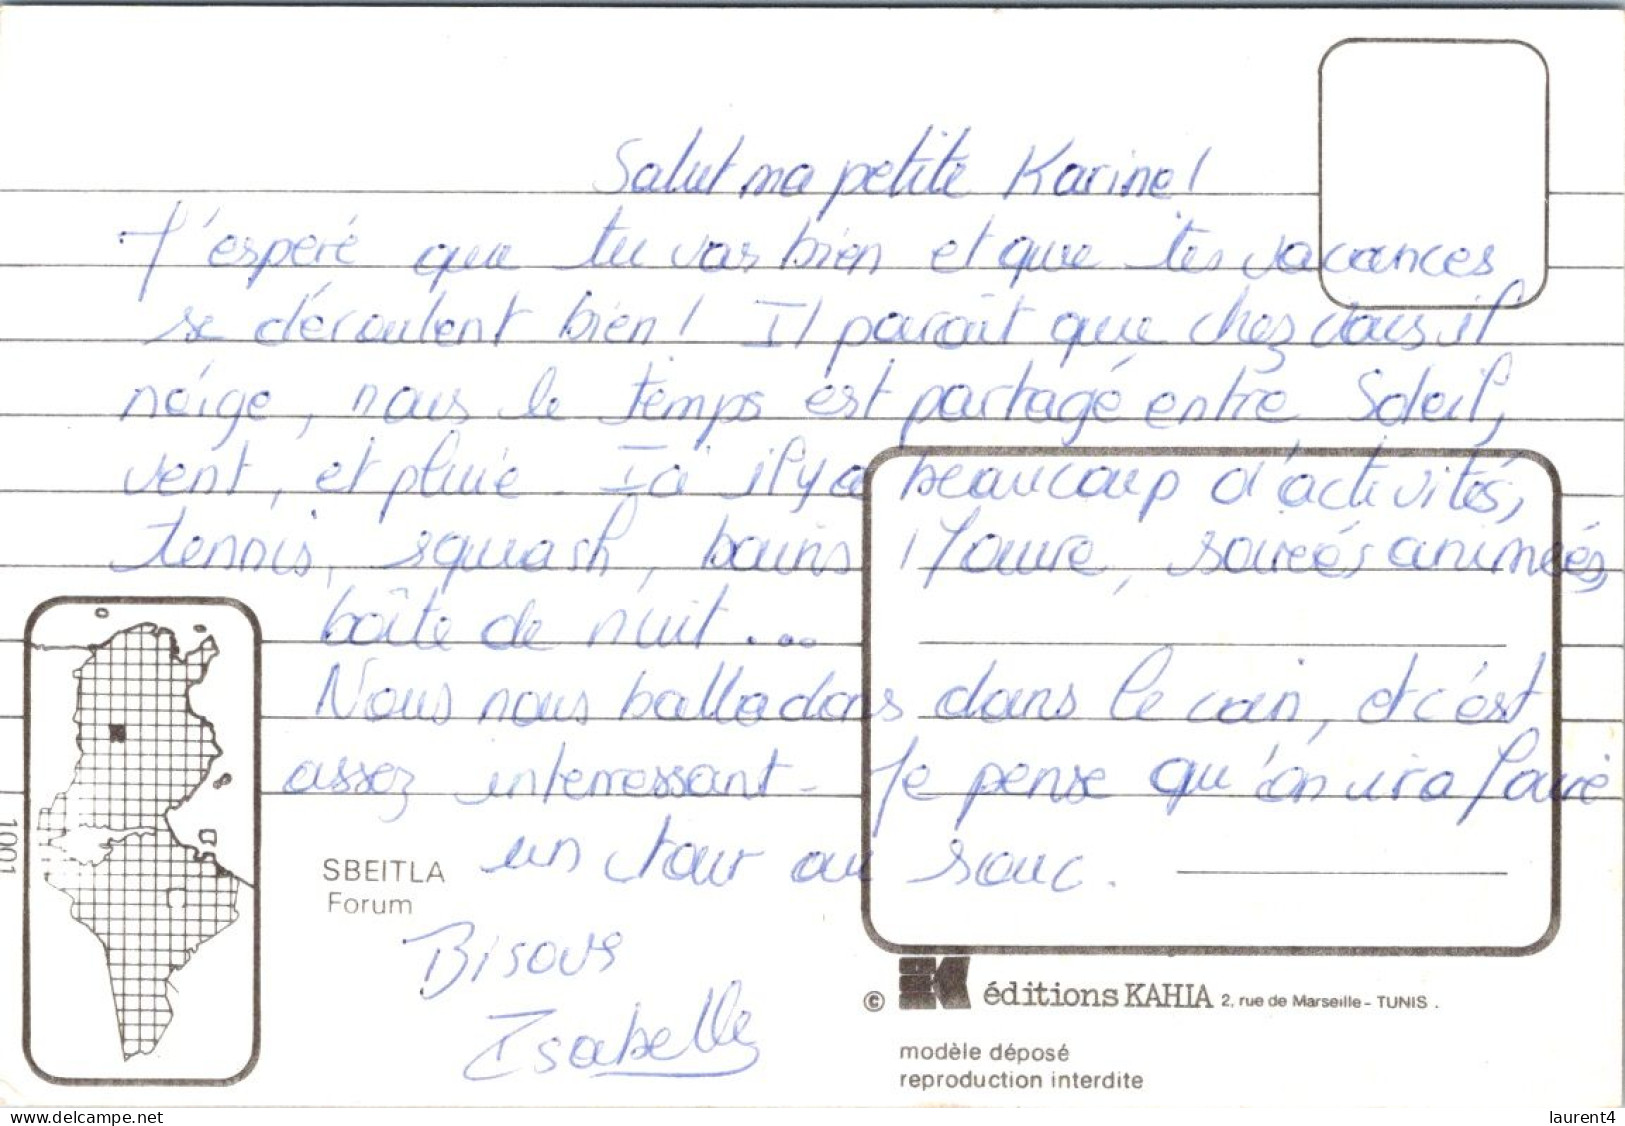 Salut ma petite Karine!
J'espère que tu vas bien et que tes vacances
se déroulent bien! Il paraît que chez vous il
neige, nous le temps est partagé entre Soleil,
vent, et pluie. Ici il y a beaucoup d'activités,
tennis, squash, bains Maure, soirées animées
boîte de nuit ...
Nous nous balladons dans le coin, et c'est
assez interressant. Je pense qu'on ira faire
un tour au souc.
Bisous
Isabelle
1001
SBEITLA
Forum
© éditions KAHIA 2, rue de Marseille - TUNIS.
modèle déposé
reproduction interdite
www.delcampe.net
laurent4